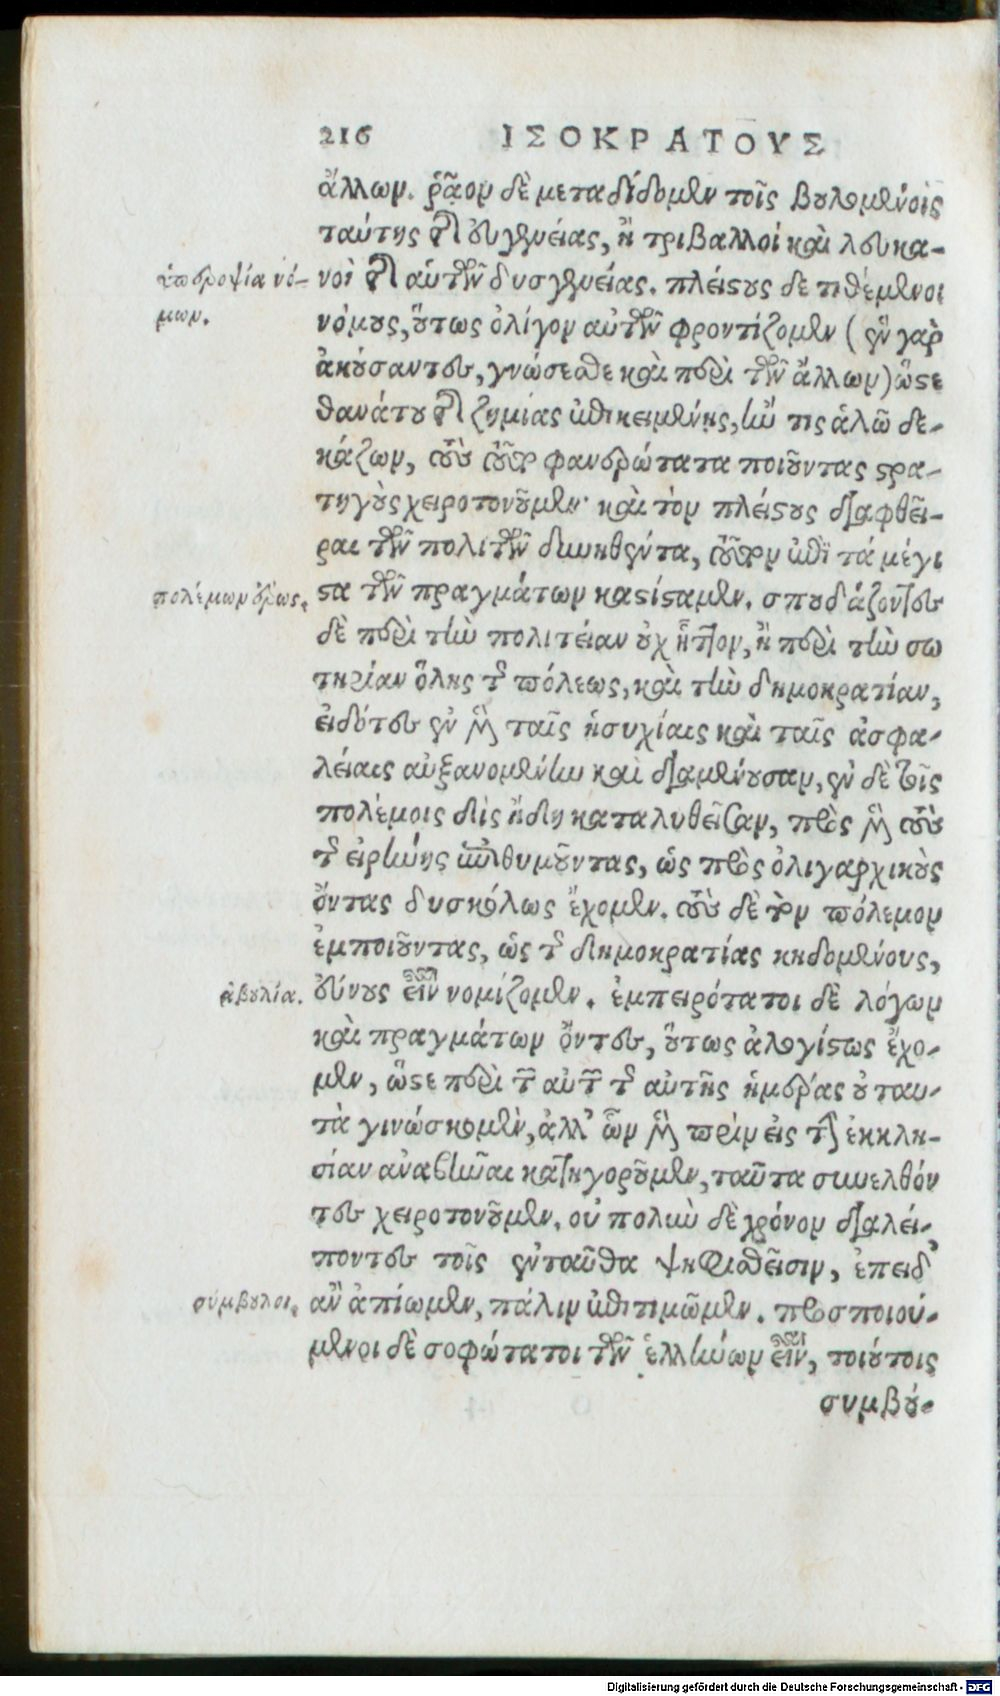 216 ΙΣΟΚΡΑΤΟΥΣ
ἄλλων. ῥᾷον δὲ μεταδίδομεν τοῖς βουλομένοις
ταύτης τῆς εὐγενείας, ἢ τριβαλλοὶ καὶ λευκα-
ὑπεροψία νό-
μων.
νοὶ τῆς αὑτῶν δυσγενείας. πλείστους δὲ τιθέμενοι
νόμους, οὕτως ὀλίγον αὐτῶν φροντίζομεν (ἓν γὰρ
ἀκούσαντες, γνώσεσθε καὶ περὶ τῶν ἄλλων) ὥστε
θανάτου τῆς ζημίας ἐπικειμένης, ἤν τις ἁλῷ δε-
κάζων, τοὺς τοῦτο φανερώτατα ποιοῦντας στρα-
τηγοὺς χειροτονοῦμεν· καὶ τὸν πλείστους διαφθεῖ-
ραι τῶν πολιτῶν δυνηθέντα, τοῦτον ἐπὶ τὰ μέγι
πολέμων ἔρως.
στα τῶν πραγμάτων καθίσταμεν. σπουδάζοντες
δὲ περὶ τὴν πολιτείαν οὐχ ἧττον, ἢ περὶ τὴν σω
τηρίαν ὅλης τῆς πόλεως, καὶ τὴν δημοκρατίαν,
εἰδότες ἐν μὲν ταῖς ἡσυχίαις καὶ ταῖς ἀσφα-
λείαις αὐξανομένην καὶ διαμένουσαν, ἐν δὲ τοῖς
πολέμοις δὶς ἤδη καταλυθεῖσαν, πρὸς μὲν τοὺς
τῆς εἰρήνης ἐπιθυμοῦντας, ὡς πρὸς ὀλιγαρχικοὺς
ὄντας δυσκόλως ἔχομεν. τοὺς δὲ τὸν πόλεμον
ἐμποιοῦντας, ὡς τῆς δημοκρατίας κηδομένους,
ἀβουλία.
εὔνους εἶναι νομίζομεν. ἐμπειρότατοι δὲ λόγων
καὶ πραγμάτων ὄντες, οὕτως ἀλογίστως ἔχο-
μεν, ὥστε περὶ τῶν αὐτῶν τῆς αὐτῆς ἡμέρας οὐ ταυ-
τὰ γινώσκομεν, ἀλλ' ὧν μὲν πρὶν εἰς τὴν ἐκκλη-
σίαν ἀναβῆναι κατηγοροῦμεν, ταῦτα συνελθόν
τες χειροτονοῦμεν. οὐ πολὺν δὲ χρόνον διαλεί-
ποντες τοῖς ἐνταῦθα ψηφισθεῖσιν, ἐπειδ'
σύμβουλοι.
ἂν ἀπίωμεν, πάλιν ἐπιτιμῶμεν. προσποιού-
μενοι δὲ σοφώτατοι τῶν ἑλλήνων εἶναι, τοιούτοις
συμβού-
Digitalisierung gefördert durch die Deutsche Forschungsgemeinschaft - DFG